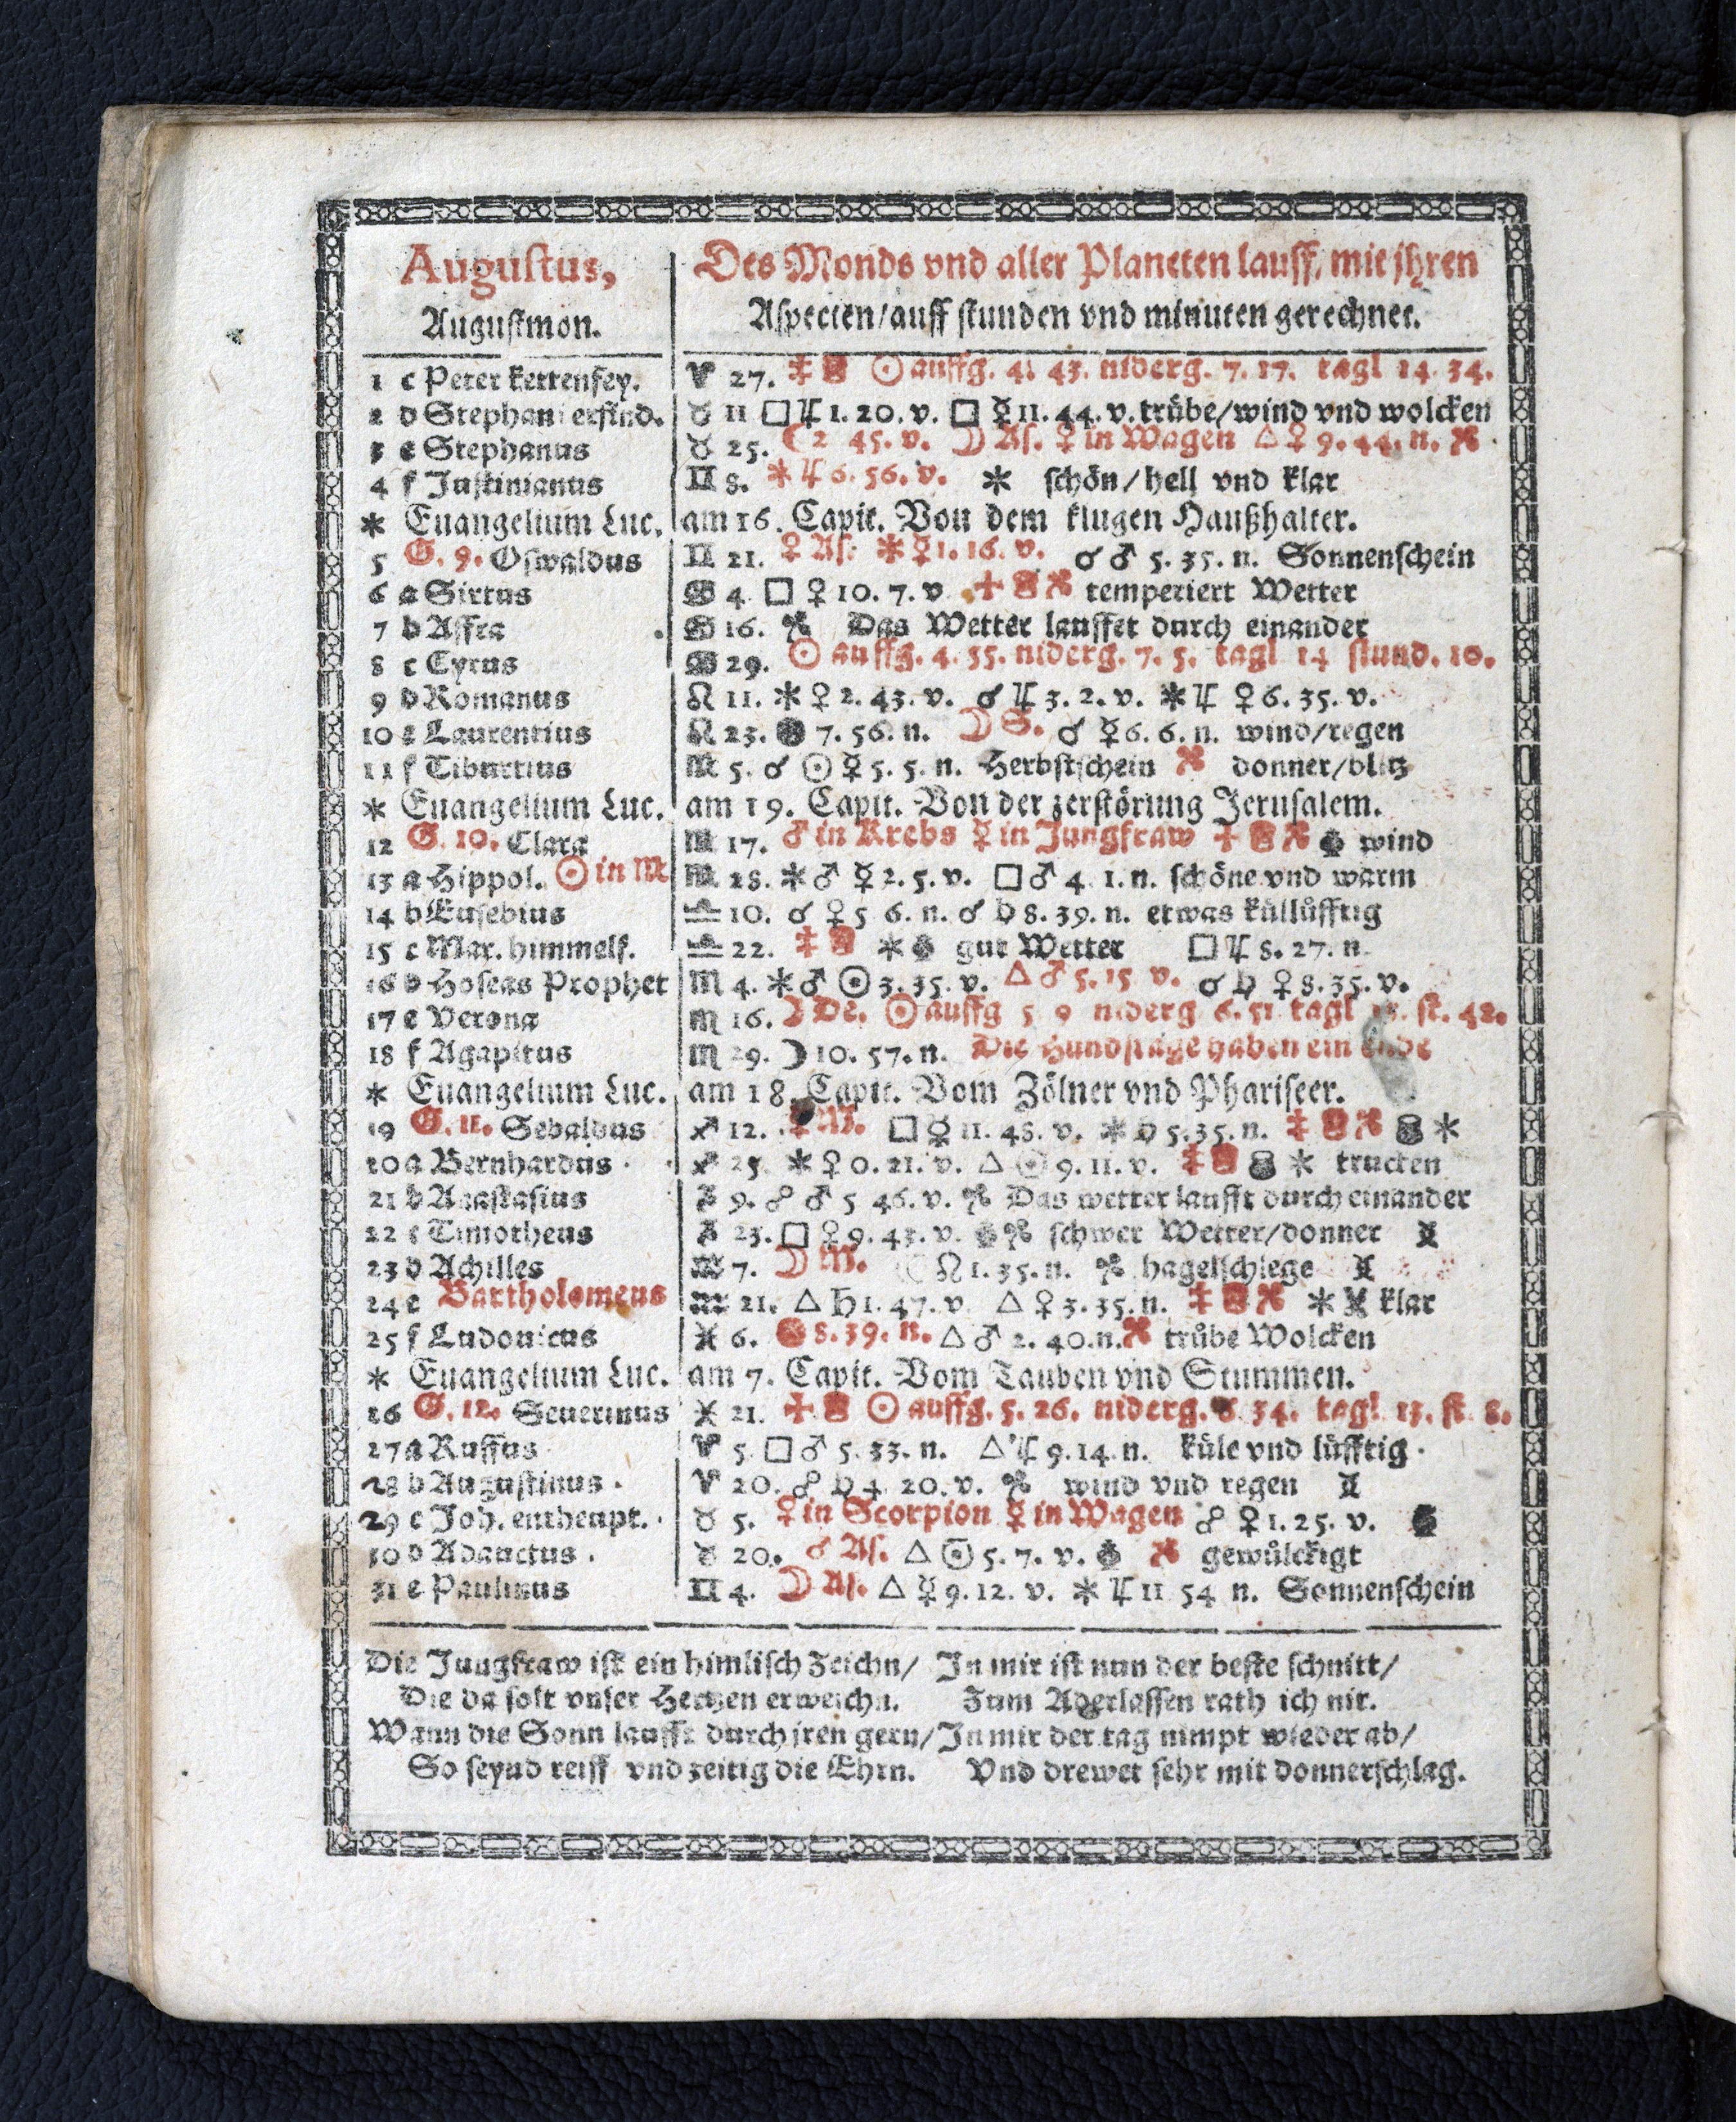 Augustus,
Augustmon.
Des Monds vnd aller Planeten lauff, mit jhren
Aspecten/auff stunden vnd minuten gerechnet.
1 c Peter kettenfey. ♈ 27. ☉ auffg. 4. 43. niderg. 7. 17. tagl 14. 34.
2 d Stephani erfind. ♉ 11 □ ♃ 1. 20. v. □ ☿ 11. 44. v. trübe/wind vnd wolcken
3 e Stephanus ♉ 25. ☾ 2 45. v. ☽ As. ☿ in Wagen △ ♀ 9. 44. n.
4 f Justinianus ♊ 8. ⚹ ♃ 6. 56. v. ⚹ schön/hell vnd klar
⚹ Euangelium Luc. am 16. Capit. Von dem klugen Haußhalter.
5 G. 9. Oswaldus ♊ 21. ♀ As. ⚹ ☿ 1. 16. v. ☌ ♂ 5. 35. n. Sonnenschein
6 a Sixtus ♋ 4 □ ♀ 10. 7. v temperiert Wetter
7 b Affra ♋ 16. Das Wetter lauffet durch einander
8 c Cyrus ♋ 29. ☉ auffg. 4. 55. niderg. 7. 5. tagl 14 stund. 10.
9 d Romanus ♌ 11. ⚹ ♀ 2. 43. v. ☌ ♃ 3. 2. v. ⚹ ♃ ♀ 6. 35. v.
10 e Laurentius ♌ 23. 7. 56. n. ☽ S. ☌ ☿ 6. 6. n. wind/regen
11 f Tiburtius ♍ 5. ☌ ☉ ☿ 5. 5. n. Herbstschein donner/blitz
⚹ Euangelium Luc. am 19. Capit. Von der zerstörung Jerusalem.
12 G. 10. Clara ♍ 17. ♂ in Krebs ☿ in Jungfraw wind
13 a Hippol. ☉ in ♍ ♍ 28. ⚹ ♂ ☿ 2. 5. v. □ ♂ 4. 1. n. schöne vnd warm
14 b Eusebius ♎ 10. ☌ ♀ 5 6. n. ☌ ♄ 8. 39. n. etwas küllüfftig
15 c Mar. himmelf. ♎ 22. ⚹ gut Wetter □ ♃ 8. 27. n.
16 d Hoseas Prophet ♏ 4. ⚹ ♂ ☉ 3. 35. v. △ ♂ 5. 15 v. ☌ ♄ ♀ 8. 35. v.
17 e Verona ♏ 16. ☽ De. ☉ auffg 5 9 niderg 6. 51 tagl st. 42.
18 f Agapitus ♏ 29. ☽ 10. 57. n. Die Hundstäge haben ein ende
⚹ Euangelium Luc. am 18. Capit. Vom Zölner vnd Phariseer.
19 G. 11. Sebaldus ♐ 12. □ ☿ 11. 48. v. ⚹ ♄ 5. 35. n. ⚹
20 a Bernhardus ♐ 25 ⚹ ♀ 0. 21. v. △ ☉ 9. 11. v. ⚹ trucken
21 b Anastasius ♑ 9. ☍ ♂ 5 46. v. Das wetter laufft durch einander
22 c Timotheus ♑ 23. □ ♀ 9. 43. v. schwer Wetter/donner
23 d Achilles ♒ 7. ☽ M. ☊ 1. 35. n. hagelschlege
24 e Bartholomeus ♒ 21. △ ♄ 1. 47. v △ ♀ 3. 35. n. ⚹ klar
25 f Ludouicus ♓ 6. 8. 39. n. △ ♂ 2. 40. n. trübe Wolcken
⚹ Euangelium Luc. am 7. Capit. Vom Tauben vnd Stummen.
26 G. 12. Seuerinus ♓ 21. ☉ auffg. 5. 26. niderg. 6 34. tagl 13. st 8.
27 a Ruffus ♈ 5 □ ♂ 5. 33. n. △ ♃ 9. 14. n. küle vnd lüfftig
28 b Augustinus ♈ 20. ☍ ♄ 4 20. v. wind vnd regen
29 c Joh. entheupt. ♉ 5. ♀ in Scorpion ☿ in Wagen ☍ ♀ 1. 25. v.
30 d Adauctus ♉ 20. ♂ As. △ ☉ 5. 7. v. gewülckigt
31 e Paulinus ♊ 4. ☽ As. △ ☿ 9. 12. v. ⚹ ♃ 11 54 n. Sonnenschein
Die Jungfraw ist ein himlisch Zeichn/ In mir ist nun der beste schnitt/
Die da solt vnser Hertzen erweichn. Zum Aderlassen rath ich nit.
Wann die Sonn laufft durch jren gern/ In mir der tag nimpt wieder ab/
So seynd reiff vnd zeitig die Ehrn. Vnd drewet sehr mit donnerschlag.